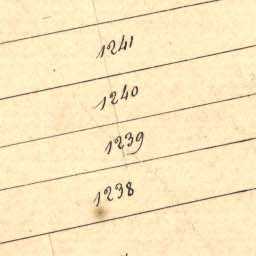 1241
1240
1239
1238